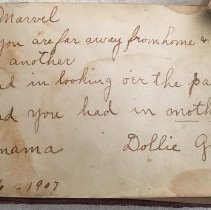 Marvel
you are far away from home &
another
d in looking o'er the pa
d you had in moth
mama Dollie G
6 - 1907